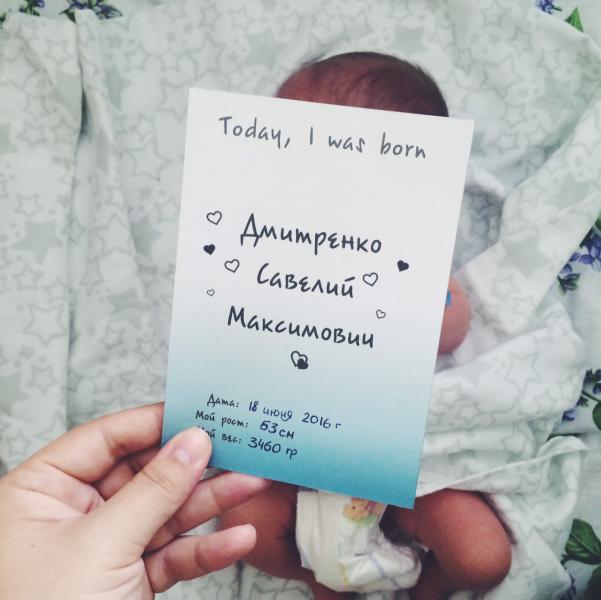 Today, I was born
Дмитренко
Савелий
Максимович
Дата: 18 июня 2016 г
Мой рост: 53 см
Мой вес: 3460 гр